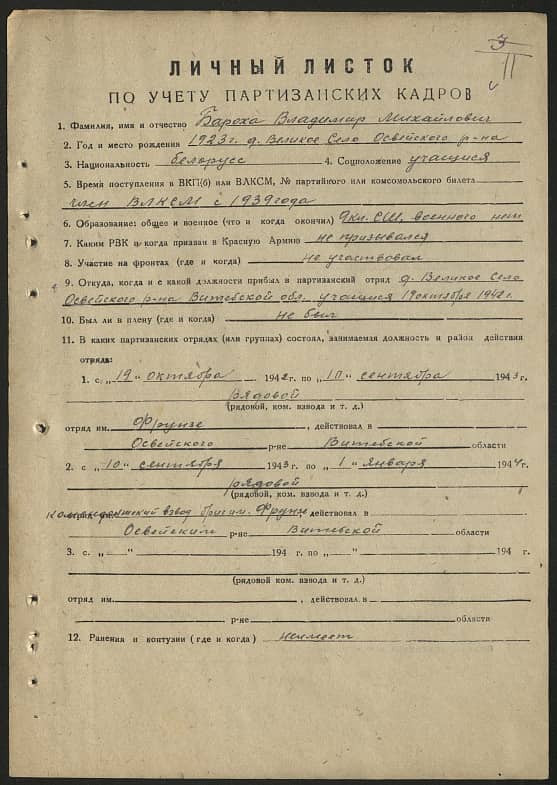 3
11
ЛИЧНЫЙ ЛИСТОК
ПО УЧЕТУ ПАРТИЗАНСКИХ КАДРОВ
1. Фамилия, имя и отчество Бароха Владимир Михайлович
2. Год и место рождения 1923 г. д. Великое Село Освейского р-на
3. Национальность белорусс 4. Соцположение учащийся
5. Время поступления в ВКП(б) или ВЛКСМ, № партийного или комсомольского билета
член ВЛКСМ с 1939 года
6. Образование: общее и военное (что и когда окончил) 9 кл. СШ, военного нет
7. Каким РВК и когда призван в Красную Армию не призывался
8. Участие на фронтах (где и когда) не участвовал
9. Откуда, когда и с какой должности прибыл в партизанский отряд д. Великое Село
Освейского р-на Витебской обл. учащийся 19 октября 1942 г.
10. Был ли в плену (где и когда) не был
11. В каких партизанских отрядах (или группах) состоял, занимаемая должность и район действия
отряда:
1. с „19" октября 1942 г. по „10" сентября 1943 г.
рядовой
(рядовой, ком. взвода и т. д.)
отряд им. Фрунзе, действовал в
Освейского р-не Витебской области
2. с „10" сентября 1943 г. по „1" января 1944 г.
рядовой
(рядовой, ком. взвода и т. д.)
комендантский взвод бриг им. Фрунзе действовал в
Освейским р-не Витебской области
3. с „ " 194 г. по „ " 194 г.
(рядовой, ком. взвода и т. д.)
отряд им. , действовал в
р-не области
12. Ранения и контузии (где и когда) неимеет